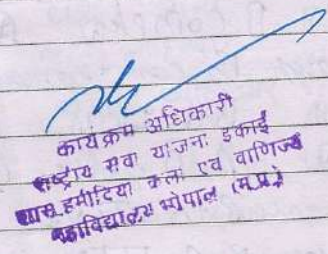 कार्यक्रम अधिकारी
राष्ट्रीय सेवा योजना इकाई
शास. हमीदिया कला एवं वाणिज्य
महाविद्यालय भोपाल (म.प्र.)